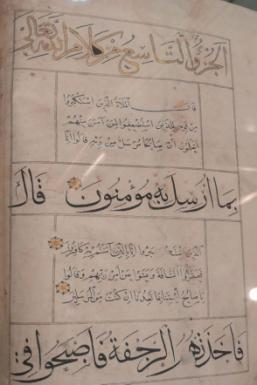 الجزؤ التاسع من كلام الله تعالى
قال الملأ الذين استكبروا
من قومه للذين استضعفوا لمن آمن منهم
أتعلمون أن صالحا مرسل من ربه قالوا إنا
بما أرسل به مؤمنون قال
الذين استكبروا إنا بالذي آمنتم به كافرون
فعقروا الناقة وعتوا عن أمر ربهم وقالوا
يا صالح ائتنا بما تعدنا إن كنت من المرسلين
فأخذتهم الرجفة فأصبحوا في